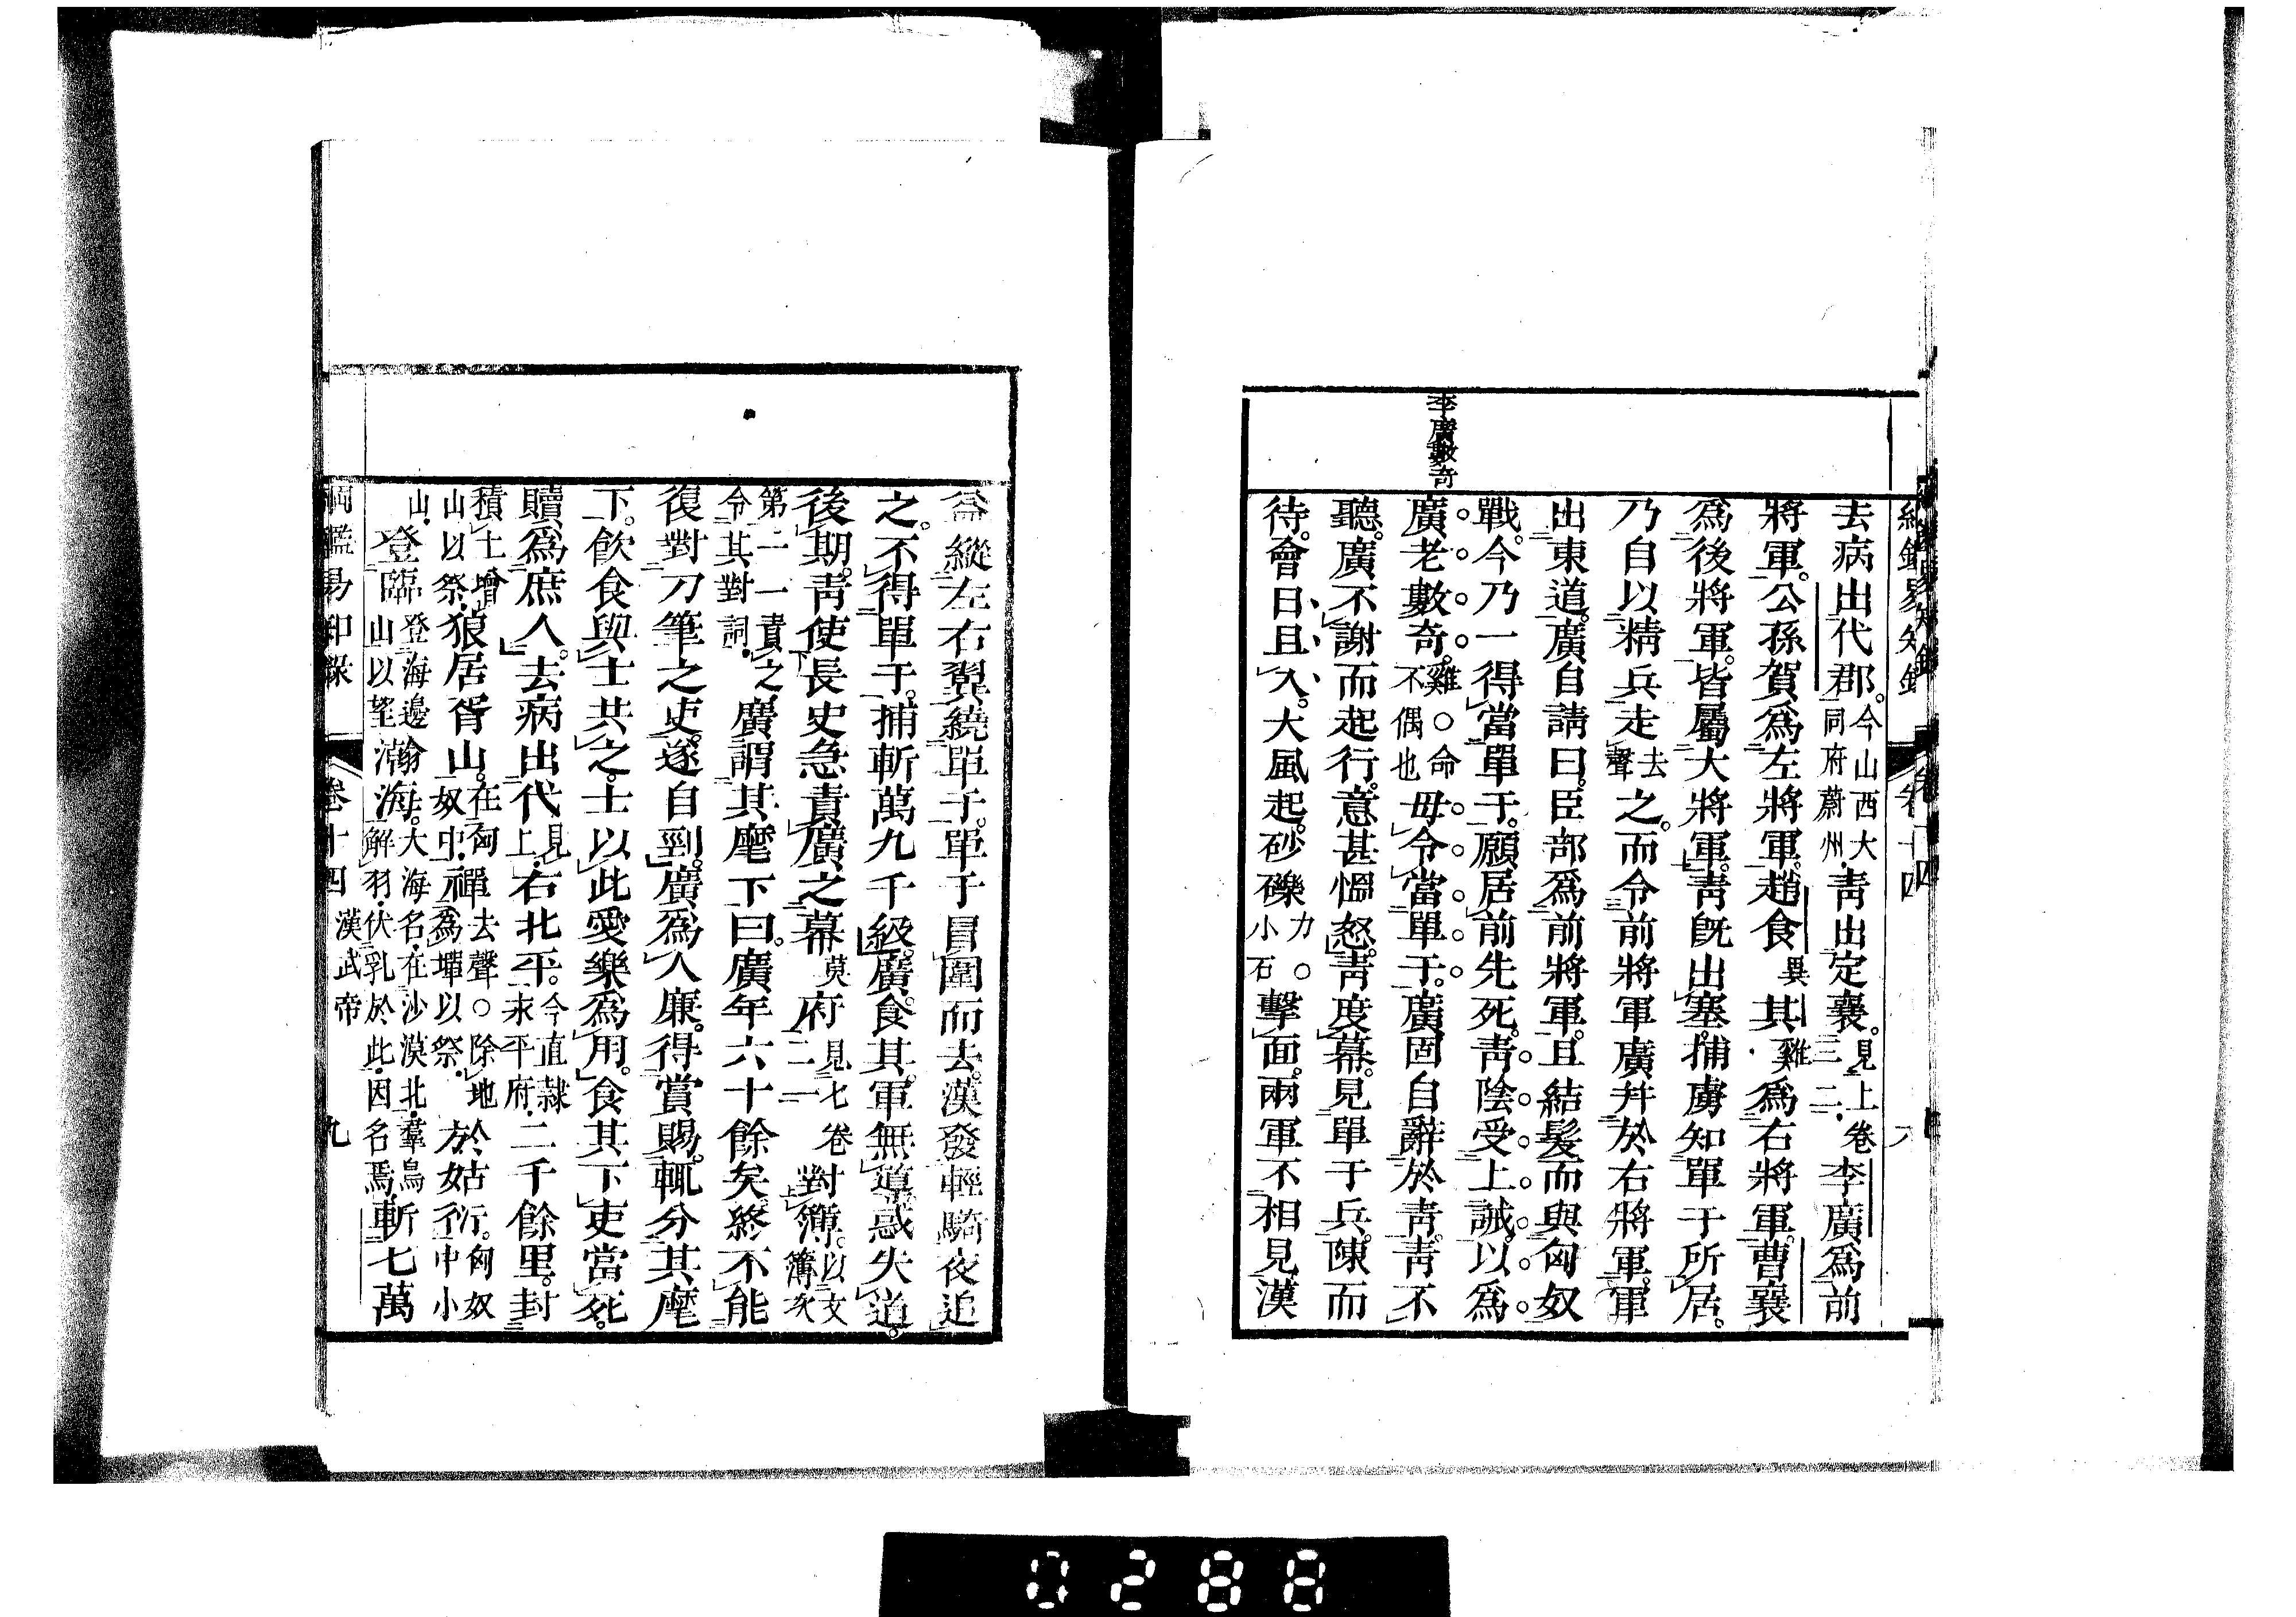 綱鑑易知錄 卷十四 八
李廣數奇
去病出代郡。今山西大同府蔚州。靑出定襄。見上卷三二。李廣爲前
將軍。公孫賀爲左將軍。趙食異其雞爲右將軍。曹襄
爲後將軍。皆屬大將軍。靑旣出塞。捕虜知單于所居。
乃自以精兵走去聲之。而令前將軍廣幷於右將軍。軍
出東道。廣自請曰。臣部爲前將軍。且結髮而與匈奴
戰。今乃一得當單于。願居前先死。靑陰受上誡。以爲
廣老數奇。雞○命不偶也毋令當單于。廣固自辭於靑。靑不
聽。廣不謝而起行。意甚慍怒。靑度幕。見單于兵。陳而
待。會日且入。大風起。砂礫力○小石擊面。兩軍不相見。漢
益縱左右翼繞單于。單于冒圍而去。漢發輕騎夜追
之。不得單于。捕斬萬九千級。廣食其軍無道惑失道。
後期。靑使長史急責廣之幕莫府見七卷二一對簿。以文簿次
第一一責之令其對詞。廣謂其麾下曰。廣年六十餘矣。終不能
復對刀筆之吏。遂自剄。廣爲人廉。得賞賜。輒分其麾
下。飮食與士共之。士以此愛樂爲用。食其下吏當死。
贖爲庶人。去病出代見上。右北平。今直隸永平府。二千餘里。封
積土增山以祭。狼居胥山。在匈奴中。禪去聲○除地爲墠以祭。於姑衍。匈奴中小
山。登臨登海邊山以望瀚海。大海名。在沙漠北。羣鳥解羽。伏乳於此。因名焉斬七萬
綱鑑易知錄 卷十四 漢武帝 九
0288